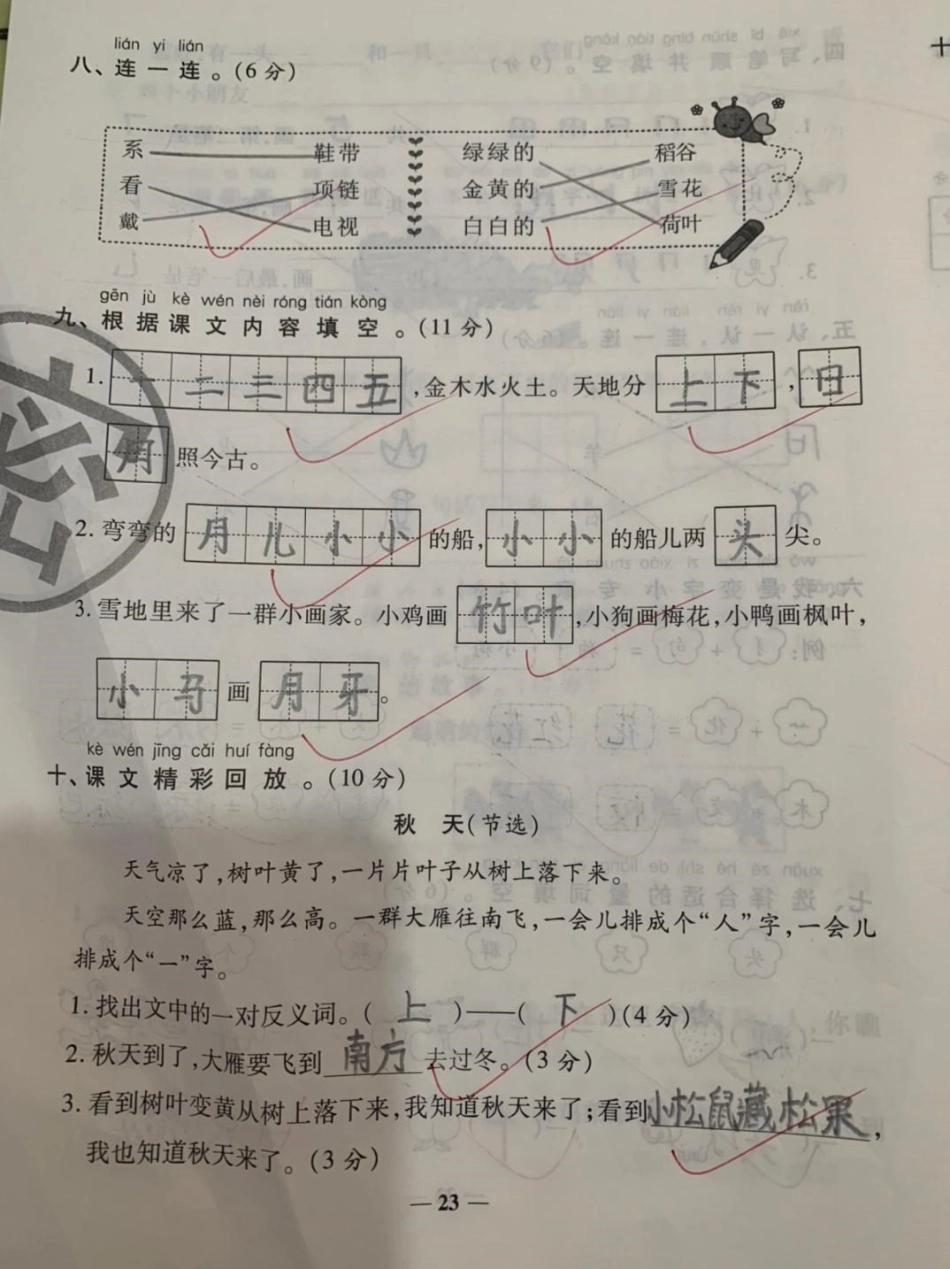 lián yi lián
八、连一连。(6分)
系 鞋带 绿绿的 稻谷
看 项链 金黄的 雪花
戴 电视 白白的 荷叶
gēn jù kè wén nèi róng tián kòng
九、根据课文内容填空。(11分)
1. 一二三四五,金木水火土。天地分上下,日
月照今古。
密
2. 弯弯的月儿小小的船,小小的船儿两头尖。
3. 雪地里来了一群小画家。小鸡画竹叶,小狗画梅花,小鸭画枫叶,
小马画月牙。
kè wén jīng cǎi huí fàng
十、课文精彩回放。(10分)
秋 天(节选)
天气凉了,树叶黄了,一片片叶子从树上落下来。
天空那么蓝,那么高。一群大雁往南飞,一会儿排成个“人”字,一会儿
排成个“一”字。
1. 找出文中的一对反义词。( 上 )——( 下 )(4分)
2. 秋天到了,大雁要飞到南方去过冬。(3分)
3. 看到树叶变黄从树上落下来,我知道秋天来了;看到小松鼠藏松果,
我也知道秋天来了。(3分)
— 23 —
十